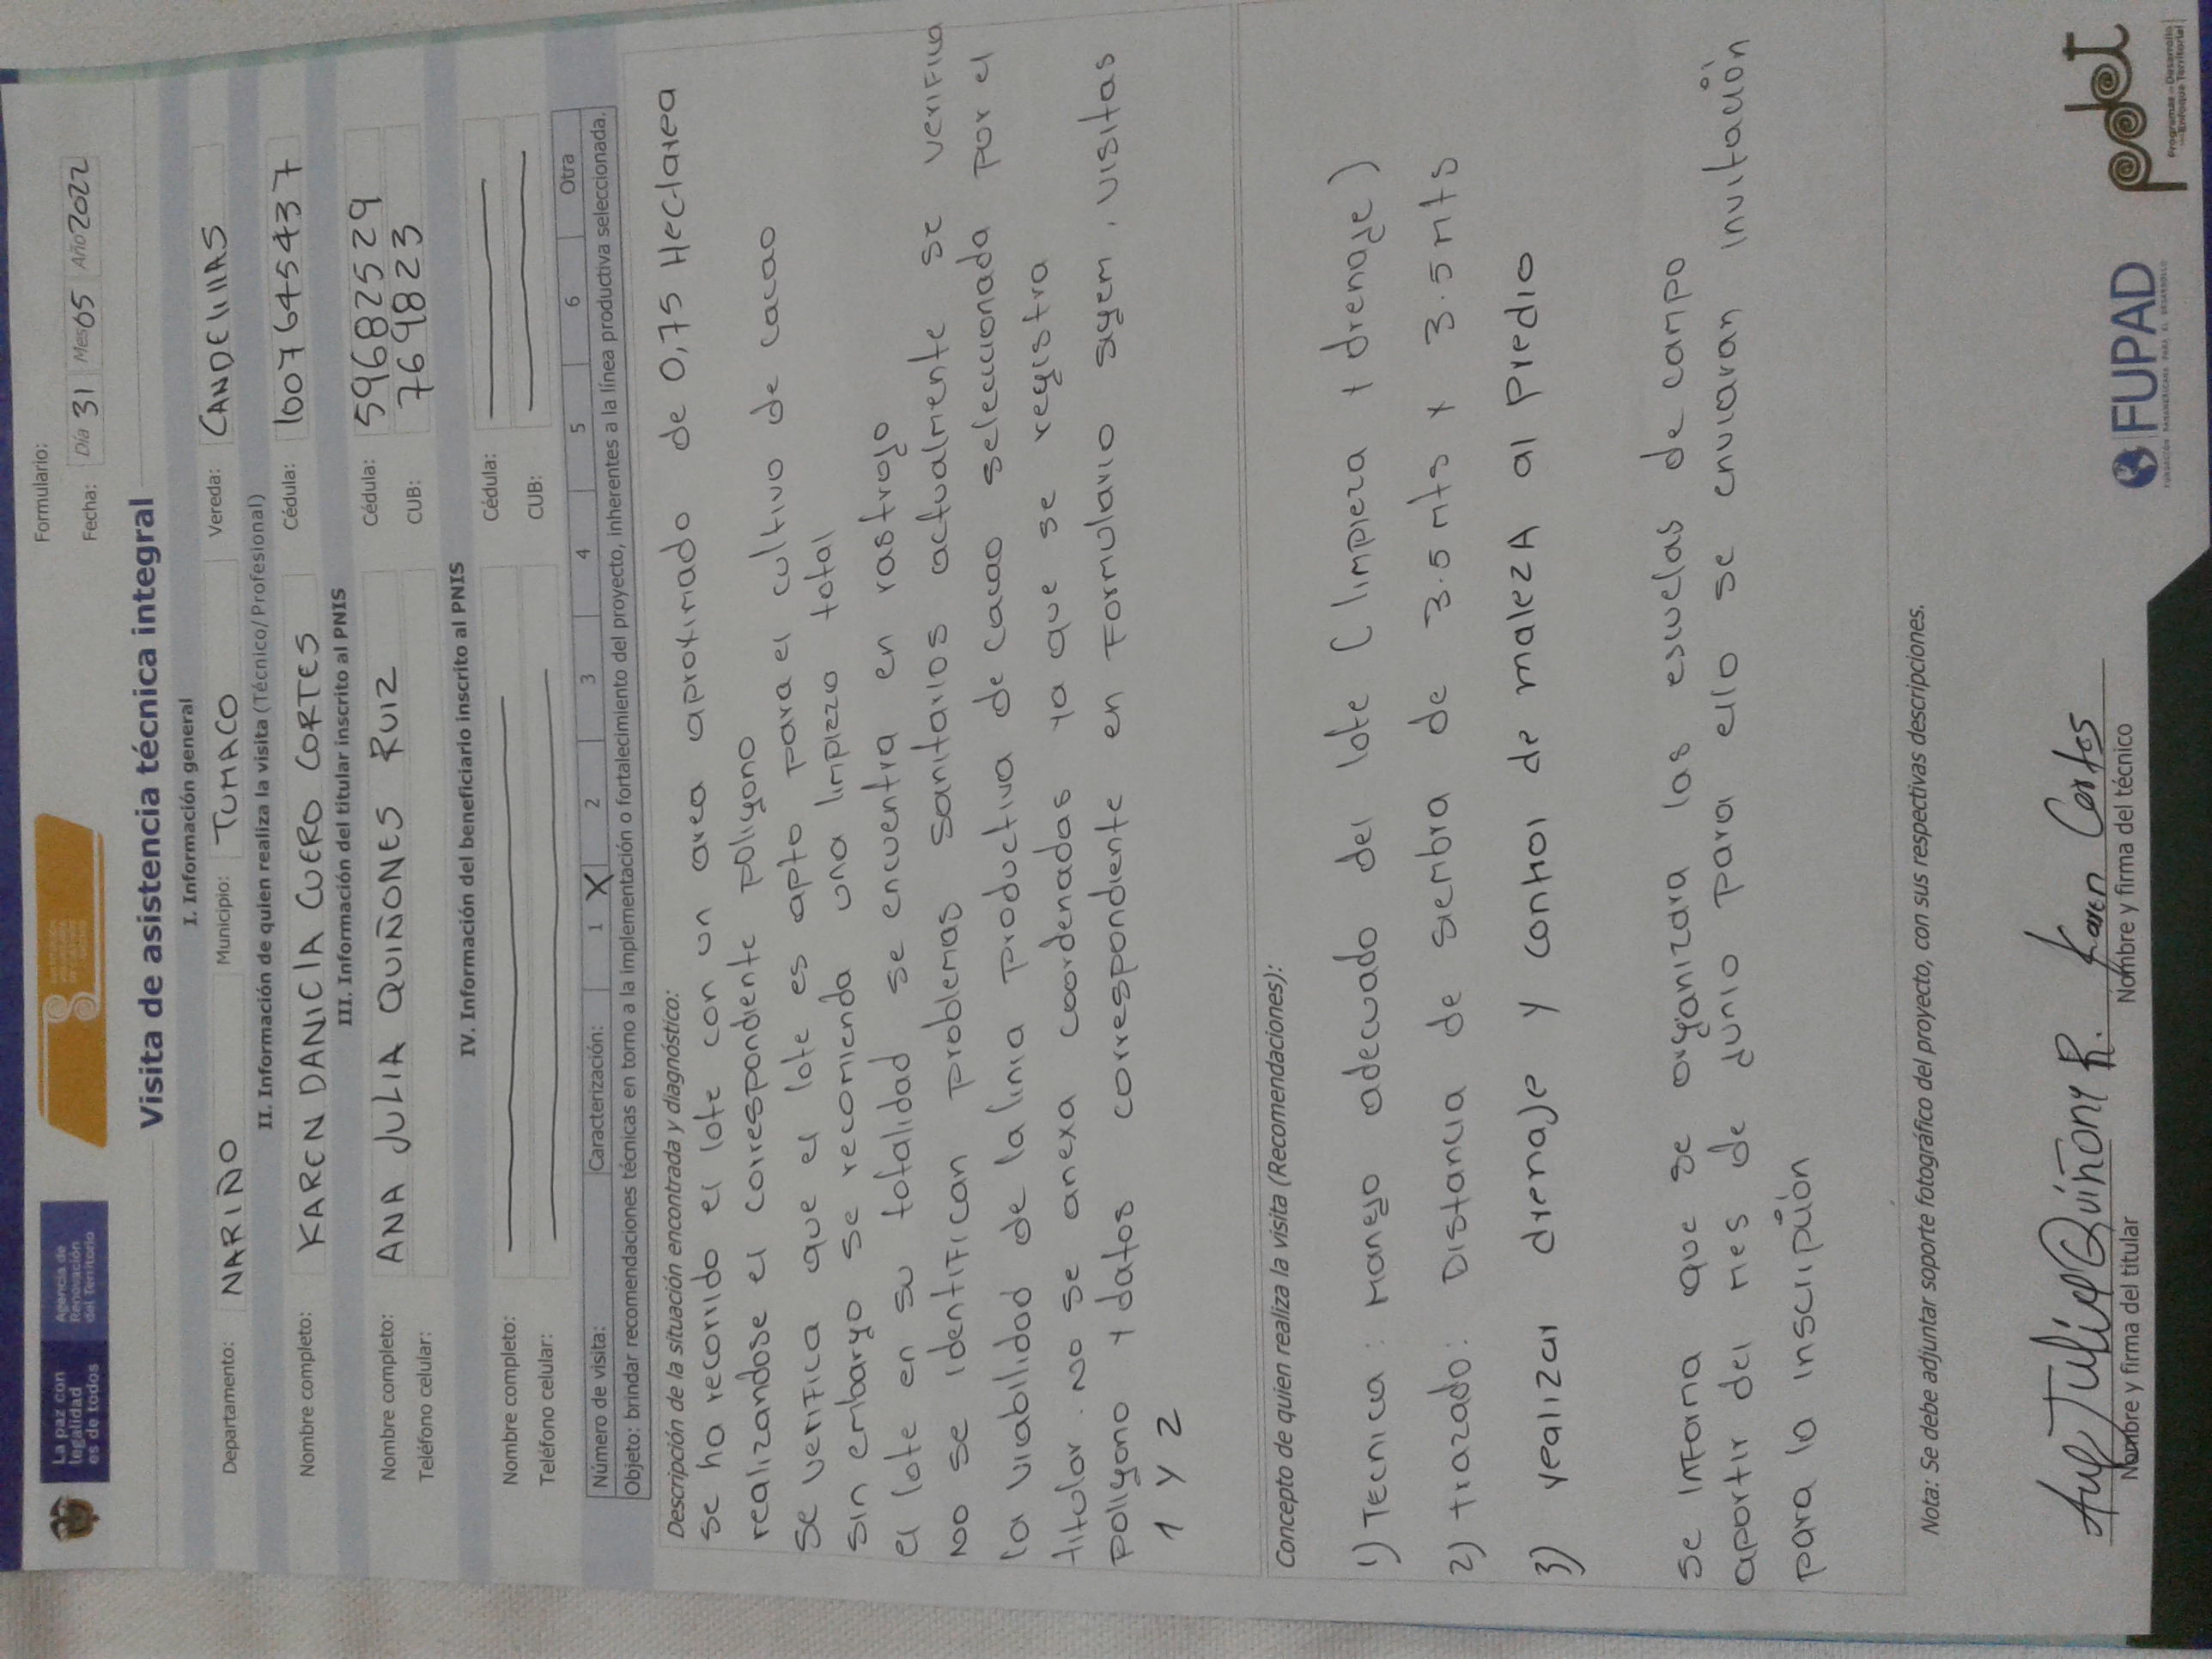 La paz con
legalidad
es de todos
Agencia de
Renovación
del Territorio
Formulario:
Fecha: Día 31 Mes 05 Año 2022
Visita de asistencia técnica integral
I. Información general
Departamento: NARIÑO Municipio: TUMACO Vereda: CANDElIllAS
II. Información de quien realiza la visita (Técnico/Profesional)
Nombre completo: KAREN DANIElA CUERO CORTES Cédula: 1007645437
III. Información del titular inscrito al PNIS
Nombre completo: ANA JULIA QUIÑONES RUIZ Cédula: 59682529
Teléfono celular: CUB: 769823
IV. Información del beneficiario inscrito al PNIS
Nombre completo: Cédula:
Teléfono celular: CUB:
Número de visita: Caracterización: 1 X 2 3 4 5 6 Otra
Objeto: brindar recomendaciones técnicas en torno a la implementación o fortalecimiento del proyecto, inherentes a la línea productiva seleccionada.
Descripción de la situación encontrada y diagnóstico:
se ha recorrido el lote con un area aproximado de 0,75 HeClarea
realizandose el correspondiente poligono
se verifica que el lote es apto para el cultivo de cacao
sin embargo se recomienda una limpieza total
el lote en su totalidad se encuentra en rastrojo
NO se identifican problemas sanitarios actualmente se verifica
la viabilidad de la linia productiva de cacao seleccionada por el
titular. NO se anexa coordenadas ya que se registra
poligono y datos correspondiente en Formulario sygem, visitas
1 y 2
Concepto de quien realiza la visita (Recomendaciones):
1) Tecnica: Manejo adecuado del lote (limpieza y drenaje)
2) trazado: Distancia de siembra de 3.5 mts x 3.5 mts
3) realizar drenaje y control de malezA al predio
se informa que se organizara las escuelas de campo
apartir del mes de junio para ello se enviaran invitación
para la inscripción
Nota: Se debe adjuntar soporte fotográfico del proyecto, con sus respectivas descripciones.
Ana Julia Quiñony R. Karen Cortes
Nombre y firma del titular Nombre y firma del técnico
FUPAD
FUNDACIÓN PANAMERICANA PARA EL DESARROLLO
pdet
Programas de Desarrollo
con Enfoque Territorial